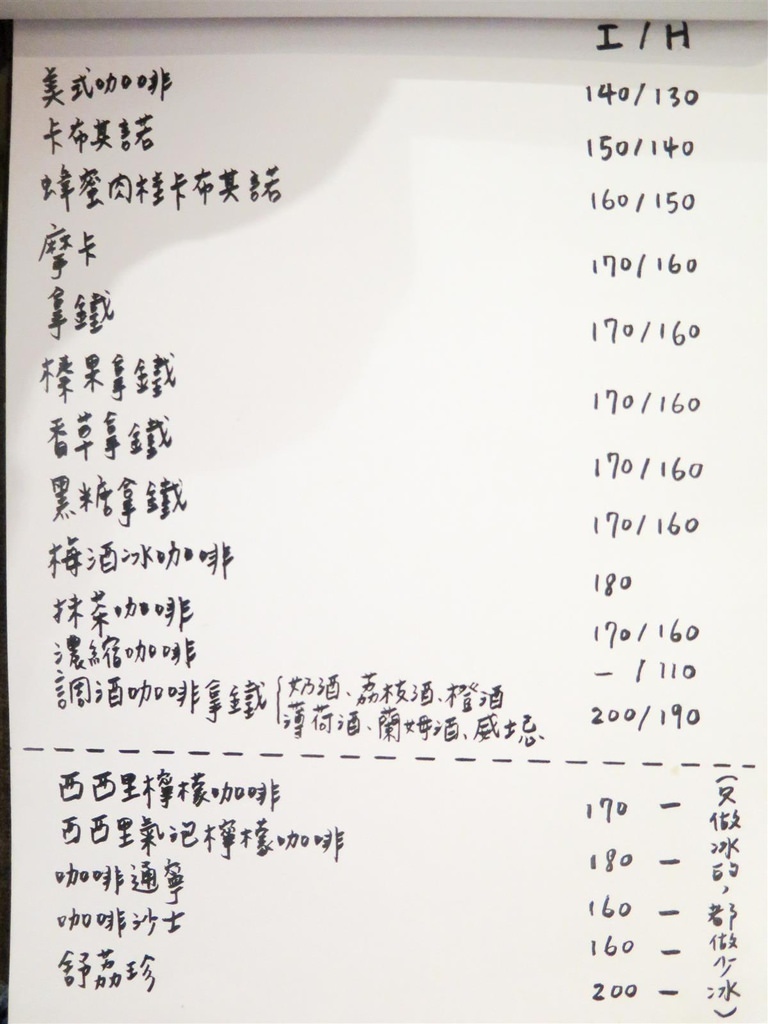 I / H
美式咖啡 140/130
卡布其諾 150/140
蜂蜜肉桂卡布其諾 160/150
摩卡 170/160
拿鐵 170/160
榛果拿鐵 170/160
香草拿鐵 170/160
黑糖拿鐵 170/160
梅酒冰咖啡 180
抹茶咖啡 170/160
濃縮咖啡 - /110
調酒咖啡拿鐵 { 奶酒、荔枝酒、橙酒
薄荷酒、蘭姆酒、威士忌 200/190
西西里檸檬咖啡 170 -
西西里氣泡檸檬咖啡 180 -
咖啡通寧 160 -
咖啡沙士 160 -
舒荔珍 200 -
(只做冰的,都做少冰)